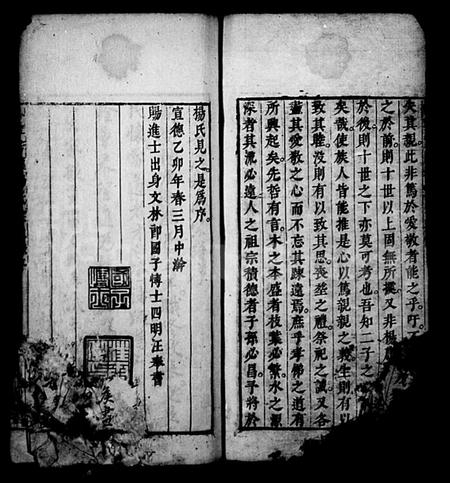 矣其親此非篤於愛敬者能之乎吁
之於前則十世以上固無所撰又非楊
於後則十世之下亦莫可考也吾知二子之心
矣哉使族人皆能推是心以篤親親之義生則有以
致其睦沒則有以致其思喪塟之禮祭祀之誠又各
盡其愛敬之心而不忘其踈遠焉庶乎孝弟之道有
所興起矣先哲有言木之本盛者枝葉必繁水之源
深者其流必遠人之祖宗積德者子孫必昌予將於
楊氏見之是爲序
宣德乙卯年春三月中澣
賜進士出身文林郎國子博士四明汪奉書